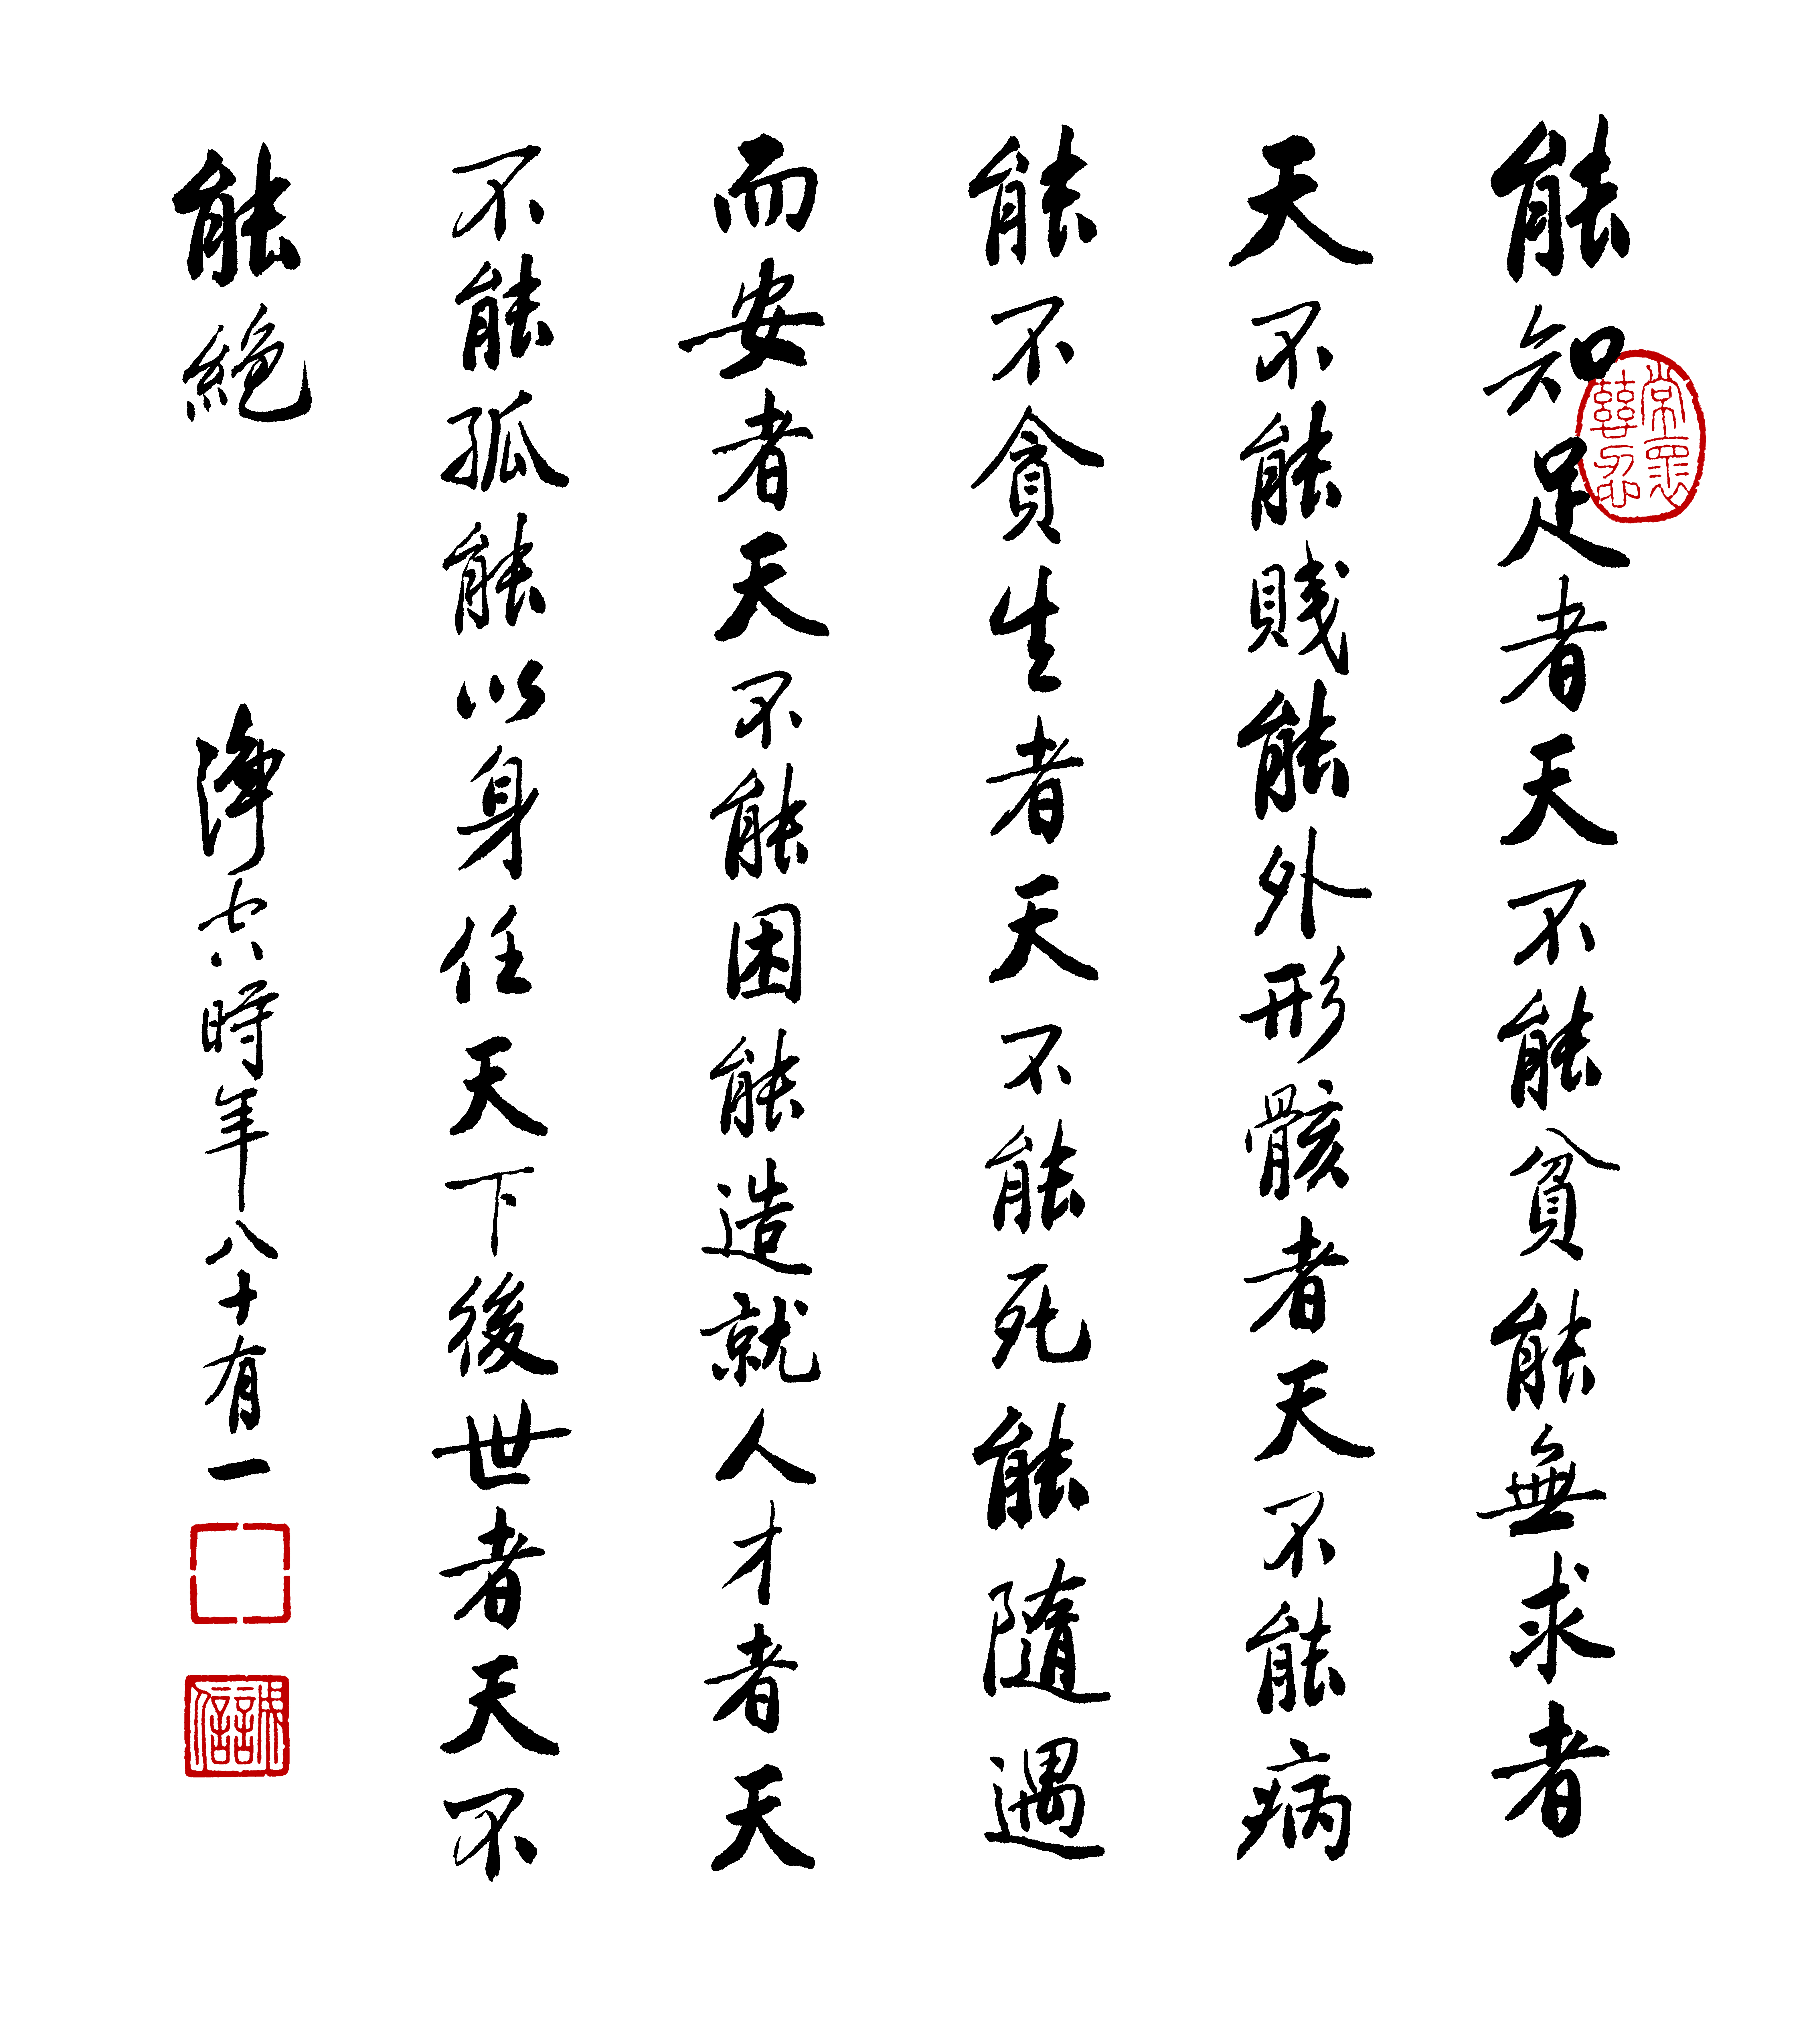 能知足者天不能貧能無求者
天不能賤能外形骸者天不能病
能不貪生者天不能死能隨遇
而安者天不能困能造就人才者天
不能孤能以身任天下後世者天不
能絶
淨空時年八十有一
常懷慈忍